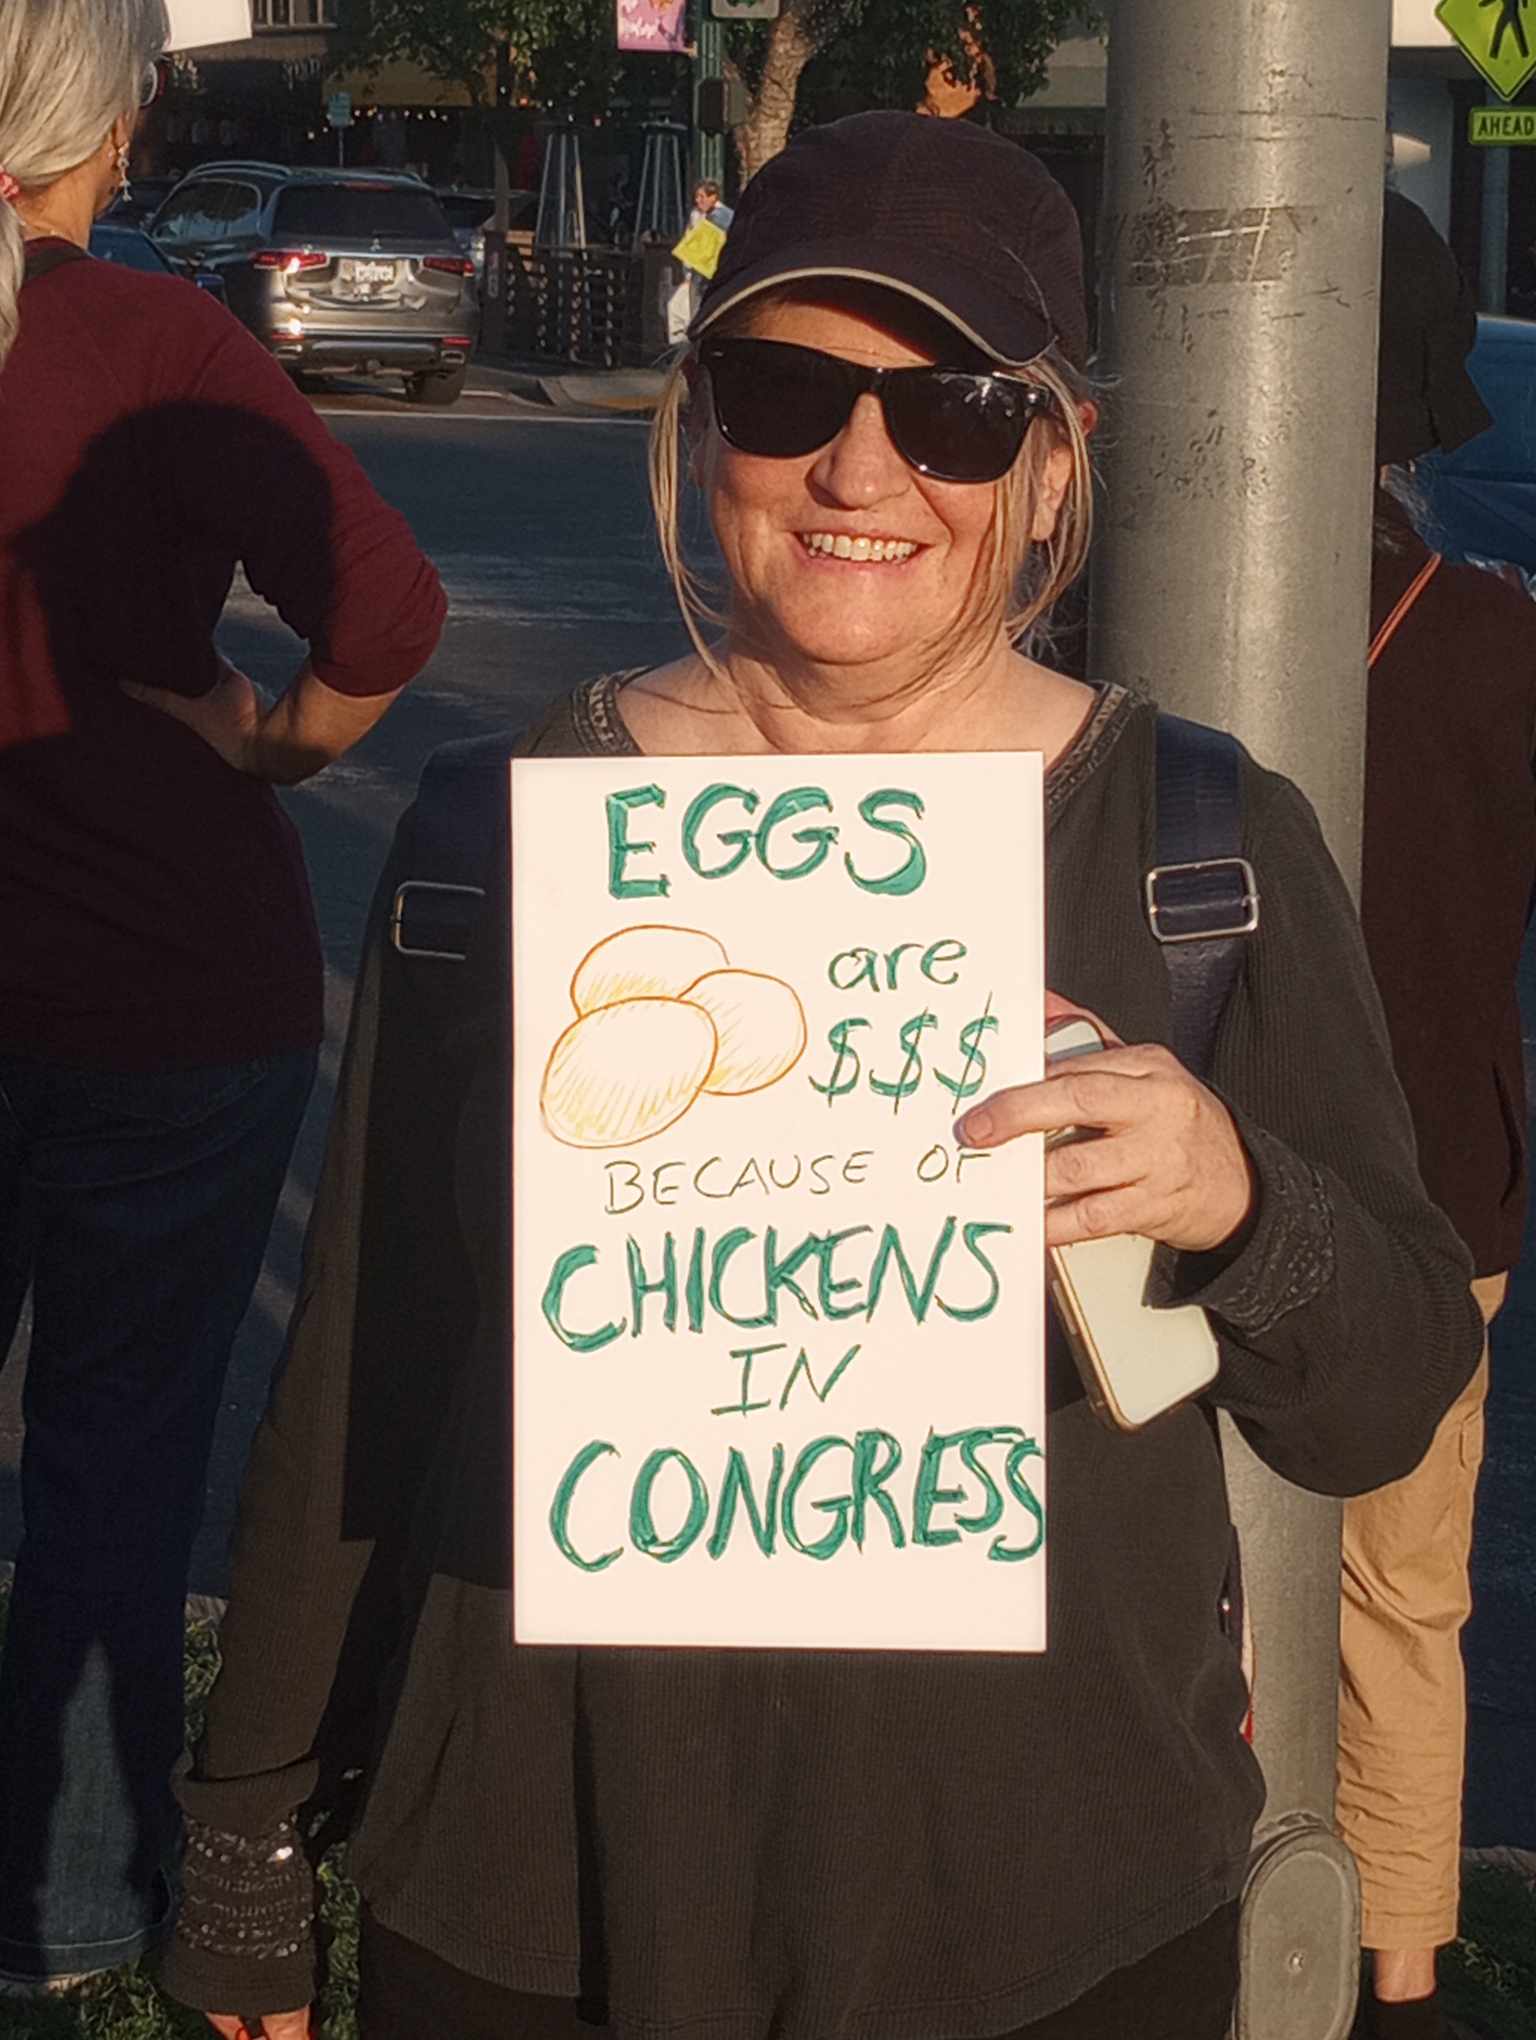 EGGS
are
$$$
BECAUSE OF
CHICKENS
IN
CONGRESS
AHEAD